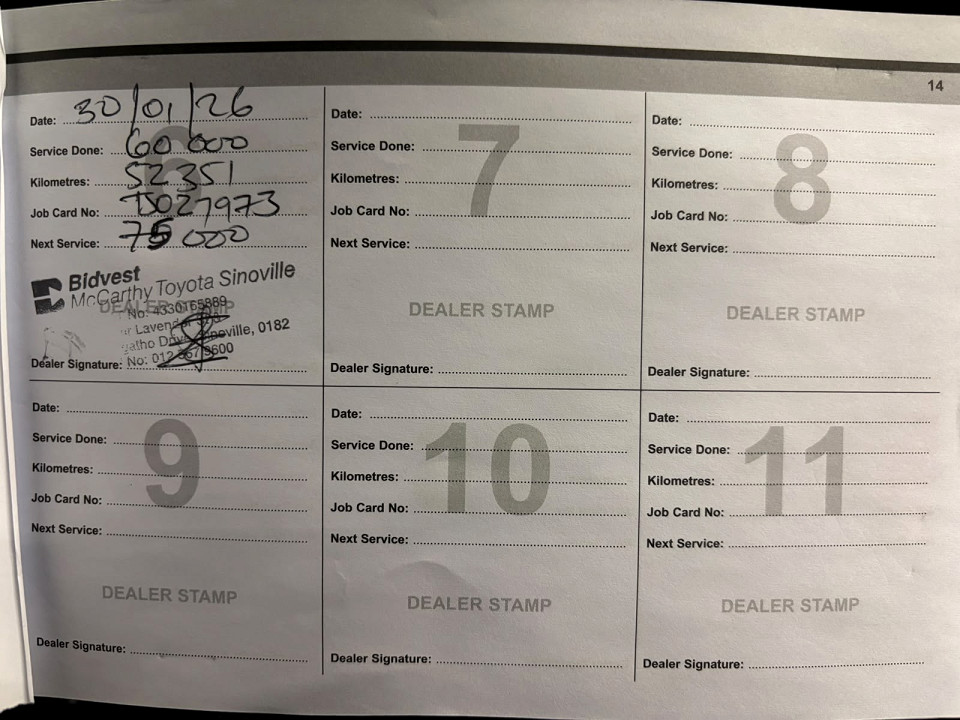 14
Date: 30/01/26
Service Done: 60 000
Kilometres: 52 351
Job Card No: 
Next Service: 75 000
6
Bidvest
McCarthy Toyota Sinoville
DEALER STAMP
No: 4330165889
Lavender
Sinoville, 0182
No: 012
9600
Dealer Signature:
Date:
Service Done:
Kilometres:
Job Card No:
Next Service:
7
DEALER STAMP
Dealer Signature:
Date:
Service Done:
Kilometres:
Job Card No:
Next Service:
8
DEALER STAMP
Dealer Signature:
Date:
Service Done:
Kilometres:
Job Card No:
Next Service:
9
DEALER STAMP
Dealer Signature:
Date:
Service Done:
Kilometres:
Job Card No:
Next Service:
10
DEALER STAMP
Dealer Signature:
Date:
Service Done:
Kilometres:
Job Card No:
Next Service:
11
DEALER STAMP
Dealer Signature: